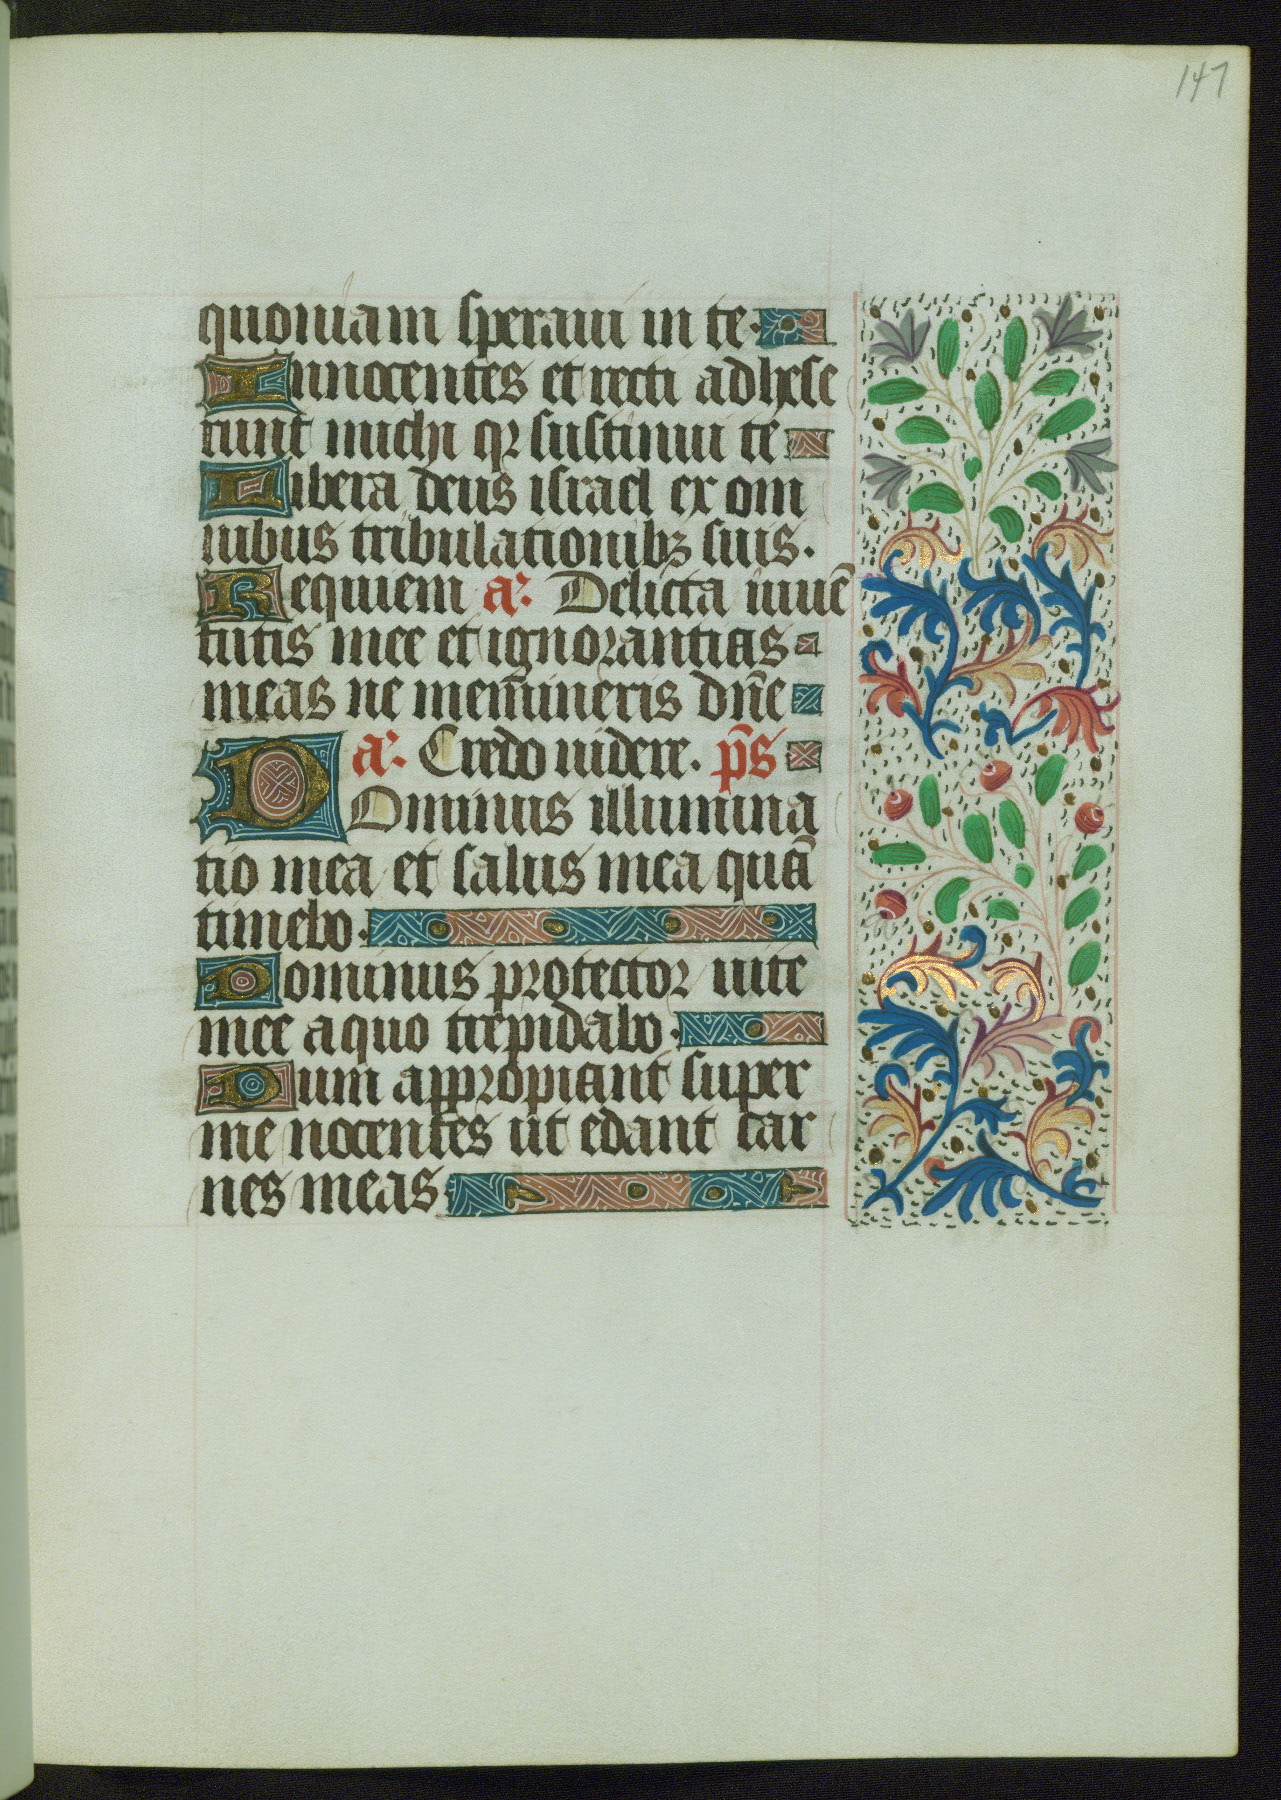 147
quoniam speraui in te.
Innocentes et recti adhese
runt michi qr sustinui te
Libera deus israel ex om
nibus tribulationibꝫ suis.
Requiem a͛. Delicta iuuē
tutis mee et ignorantias
meas ne mem̄ineris dn̄e
a͛. Credo uidere. p̄s
Dominus illumina
tio mea et salus mea quā
timebo.
Dominus protector uite
mee a quo trepidabo.
Dum appropiant super
me nocentes ut edant car
nes meas